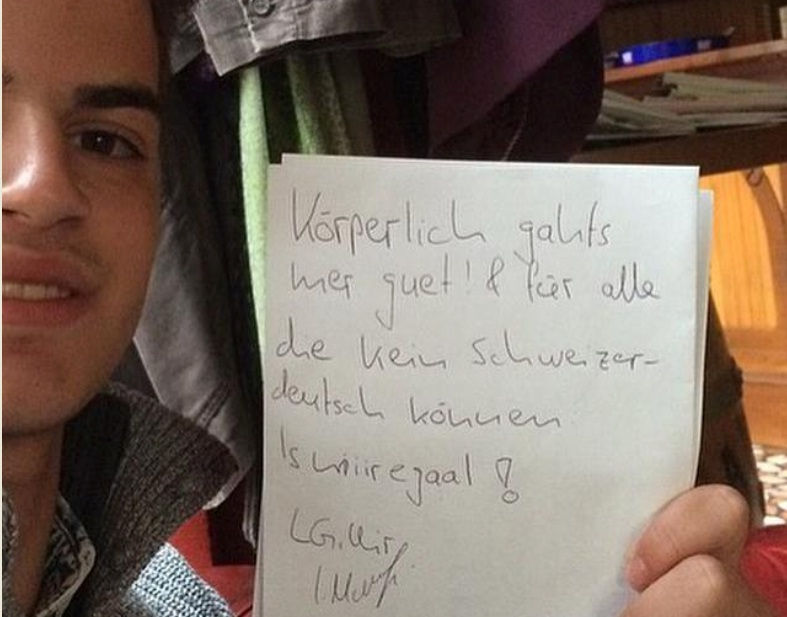 Körperlich gahts
mer guet! & für alle
die kein Schweizer-
deutsch können
LG.